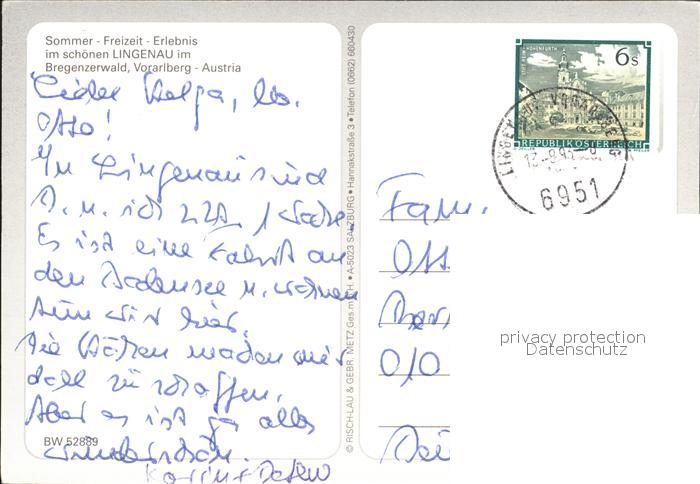 Sommer - Freizeit - Erlebnis
im schönen LINGENAU im
Bregenzerwald, Vorarlberg - Austria
Liebe Helga, lb.
Otto!
In Lingenau sind
D. u. ich z.Zt. 1 Woche.
Es ist eine Fahrt an
den Bodensee u. wohnen
tun wir hier.
Die Höhen machen mir
doll zu schaffen.
Aber es ist ja alles
wunderschön.
Karin + Detlev
BW 52889
© RISCH-LAU & GEBR. METZ Ges.m.b.H. • A-5023 SALZBURG • Hannakstraße 3 • Telefon (0662) 660430
STIFT REIN-HOHENFURTH
6 S
REPUBLIK ÖSTERREICH
6951
Fam.
Ott
0/0
privacy protection
Datenschutz